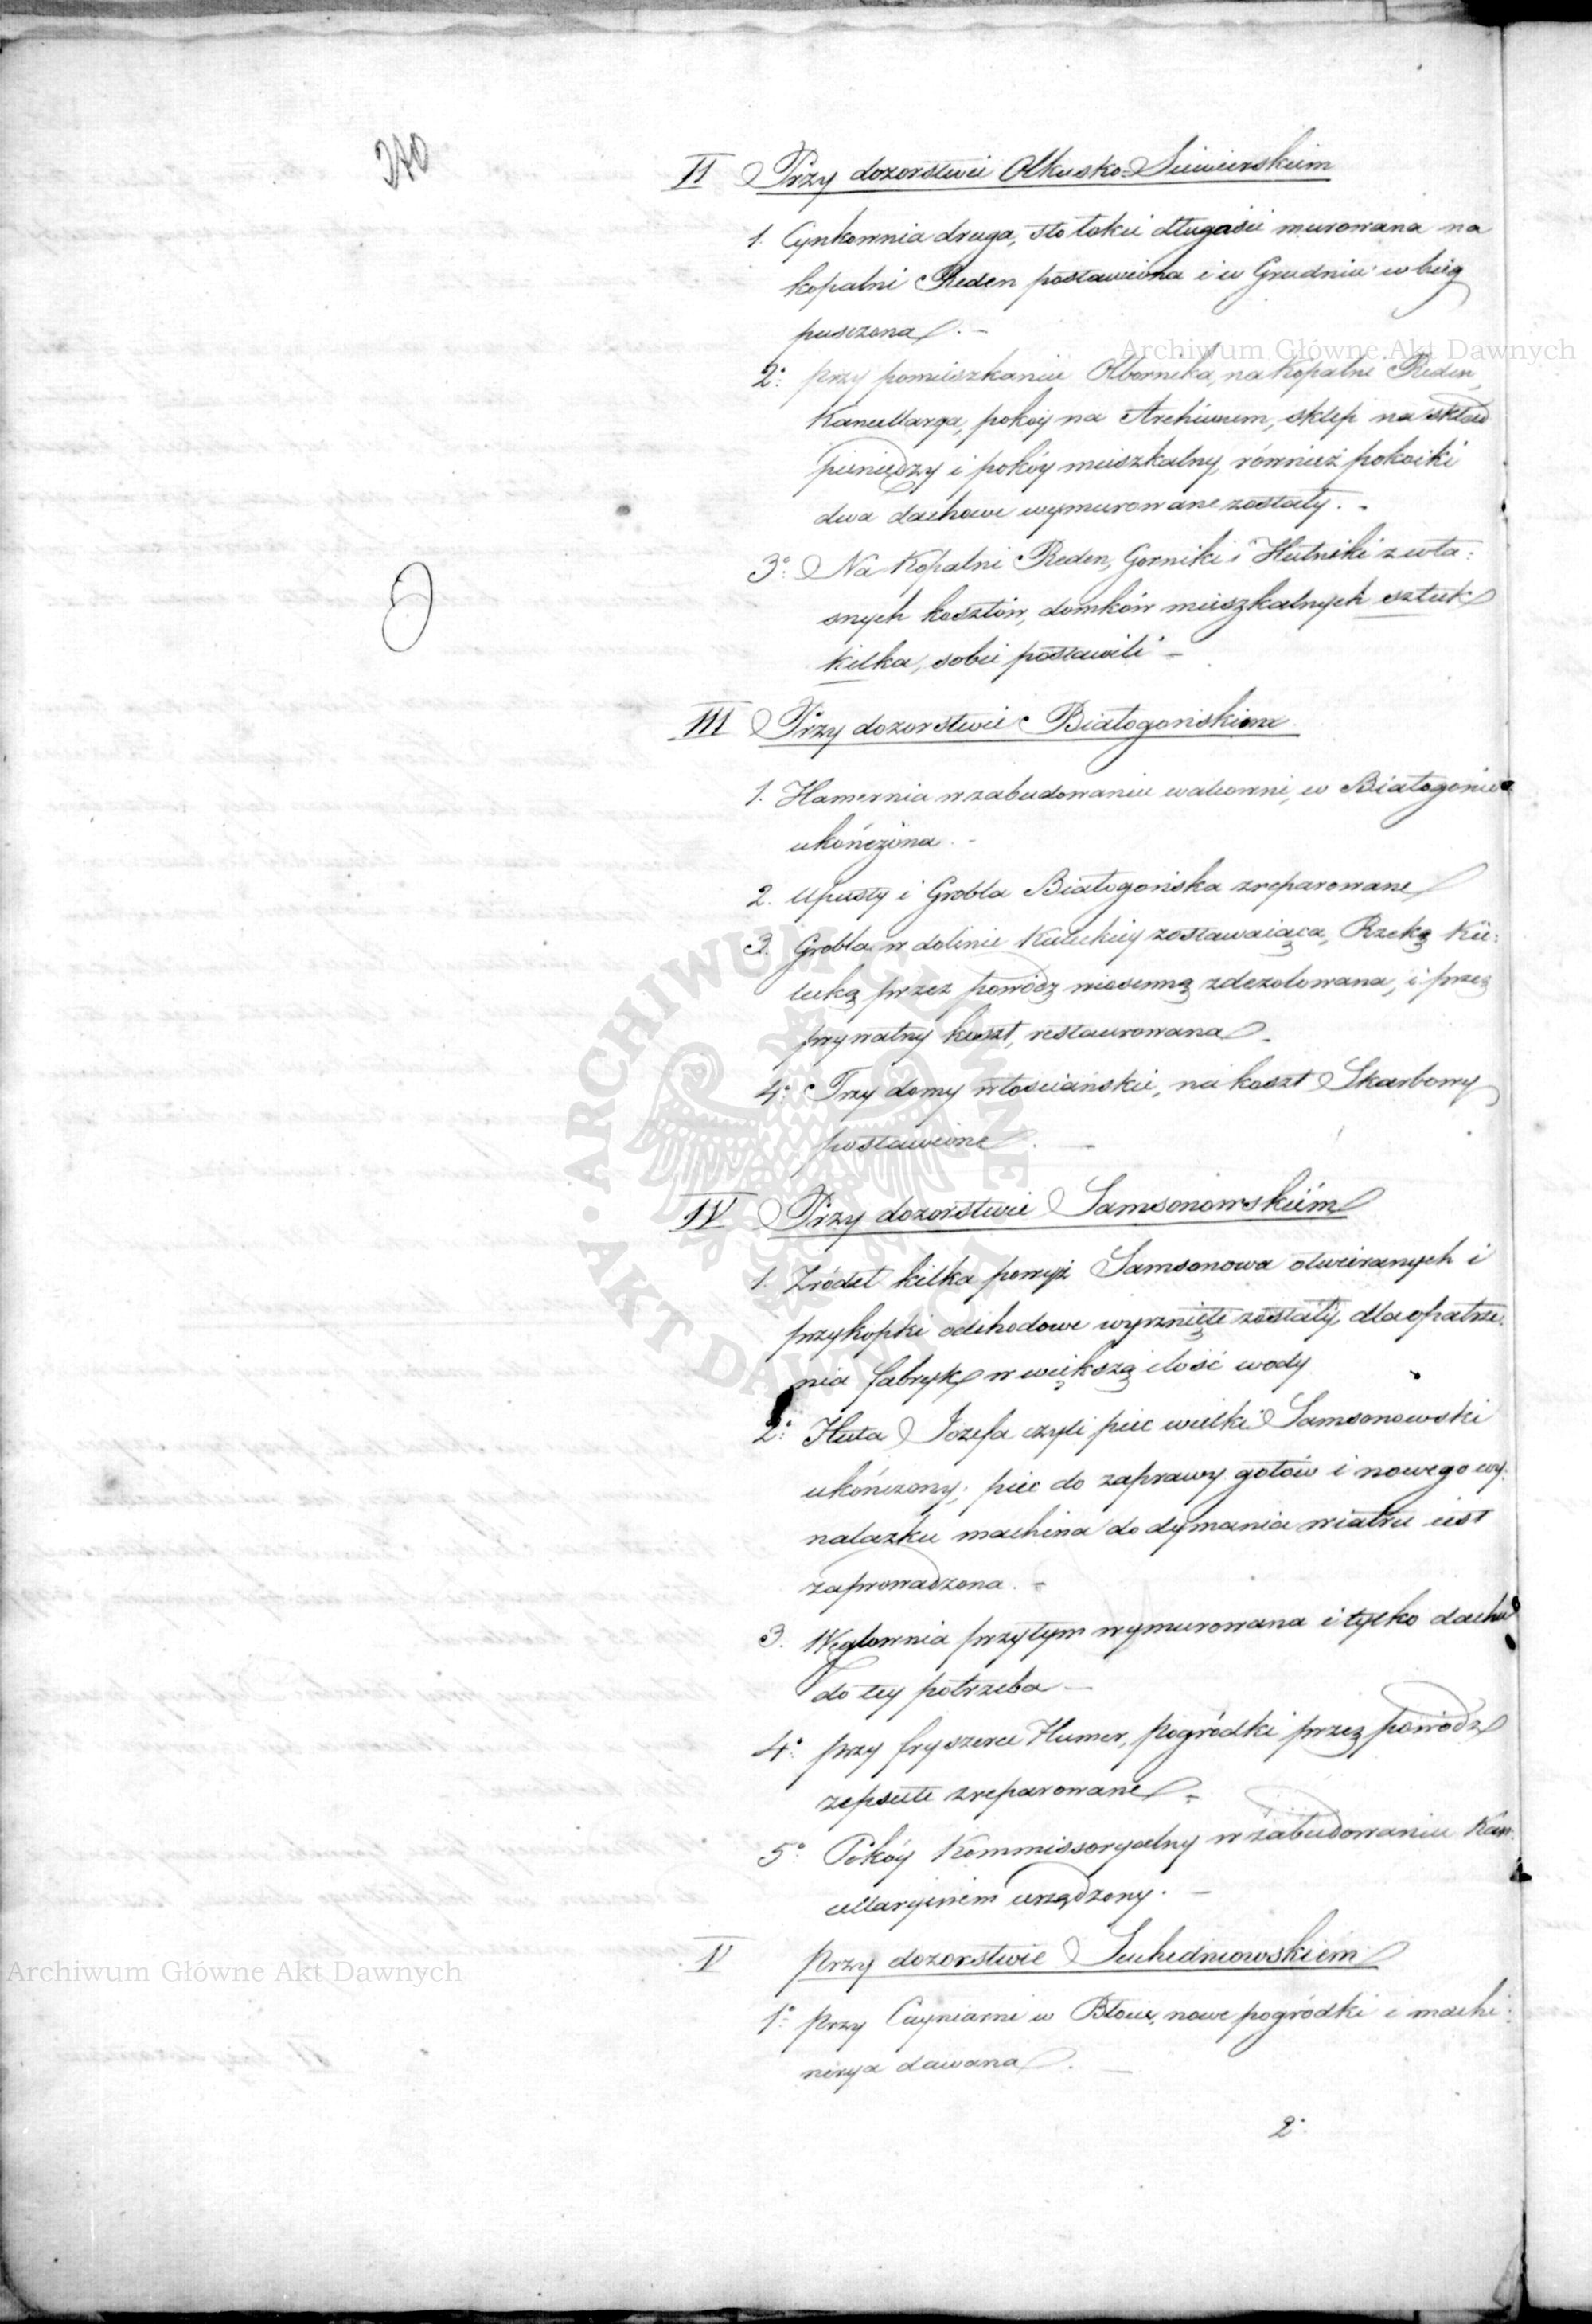 270
II Przy dozorstwie Olkusko-Siewierskiem
1. Cynkownia druga, sto łokci długości murowana na
kopalni Reden postawiona i w Grudniu w bieg
puszczona. -
Archiwum Główne Akt Dawnych
2º: przy pomieszkaniu Olbornika, na Kopalni Reden,
Kancellarya, pokóy na Archiwum, sklep na skład
pieniędzy i pokóy mieszkalny, również pokoiki
dwa dachowe wymurowane zostały. -
3º: Na Kopalni Reden, Gorniki i Hutniki z wła:
snych kosztów, domków mieszkalnych sztuk
kilka, sobie postawili -
III Przy dozorstwie Białogońskiem
1. Hamernia w zabudowaniu walcowni, w Białogonie
ukończona. -
2. Upusty i Grobla Białogońska zreparowane
3. Grobla w dolinie Kieleckiey zostawaiąca, Rzeką Kie:
lecką przez powódź wiosenną zdezolowana, i przez
prywatny koszt, restaurowana -
4º: Trzy domy włościańskie, na koszt Skarbowy
postawione. -
IV Przy dozorstwie Samsonowskiém
1. Zródeł kilka powyż Samsonowa otwieranych i
przykopki odchodowe wyrznięte zostały, dla opatrze:
nia fabryk w większą ilość wody
2º: Huta Józefa czyli piec wielki Samsonowski
ukończony; piec do zaprawy gotów i nowego wy:
nalazku machina do dymania wiatru iest
zaprowadzona. -
3. Węglownia przytym wymurowana i tylko dachu
do tey potrzeba -
4º: przy fryszerce Humer, pogródki przez powódź
zepsute zreparowane -
5º: Pokóy Kommissoryalny w zabudowaniu Kan:
cellaryinem urządzony. -
V Przy dozorstwie Suchedniowskiem
Archiwum Główne Akt Dawnych
1º: przy Cayniarni w Błocie, nowe pogródki i machi:
nerya dawana. -
2º:
ARCHIWUM GŁÓWNE AKT DAWNYCH